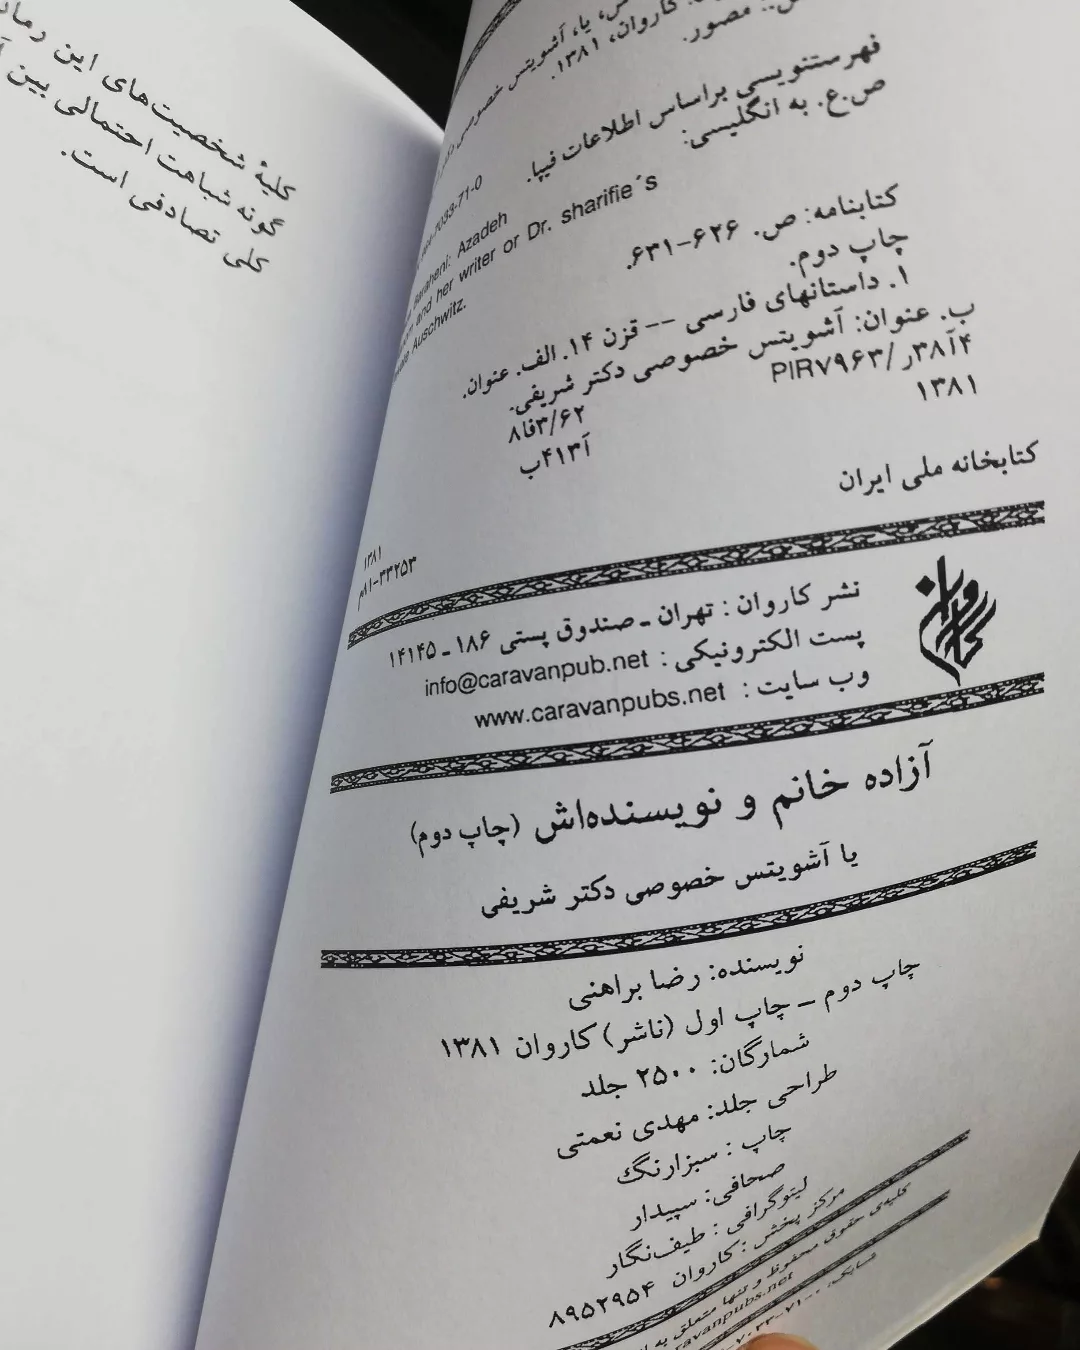 کلیهٔ شخصیت‌های این
گونه شباهت احتمالی بین
کلی تصادفی است.
یا، آشویتس خصوصی
کاروان، ۱۳۸۱.
مصور.
فهرستنویسی براساس اطلاعات فیپا.
ص.ع. به انگلیسی:
7033-71-0
Baraheni: Azadeh
and her writer or Dr. sharifie´s
Auschwitz.
کتابنامه: ص. ۶۲۶-۶۳۱.
چاپ دوم.
۱. داستانهای فارسی -- قزن ۱۴. الف. عنوان.
ب. عنوان: آشویتس خصوصی دکتر شریفی.
۸فا۳/۶۲
PIR۷۹۶۳/ ر۳۸آ۴
آ۴۱۳ب
۱۳۸۱
کتابخانه ملی ایران
۱۳۸۱
م۸۱-۳۳۲۵۳
کاروان
نشر کاروان : تهران ـ صندوق پستی ۱۸۶ ـ ۱۴۱۴۵
پست الکترونیکی : info@caravanpub.net
وب سایت : www.caravanpubs.net
آزاده خانم و نویسنده‌اش (چاپ دوم)
یا آشویتس خصوصی دکتر شریفی
نویسنده: رضا براهنی
چاپ دوم ـ چاپ اول (ناشر) کاروان ۱۳۸۱
شمارگان: ۲۵۰۰ جلد
طراحی جلد: مهدی نعمتی
چاپ : سبزارنگ
صحافی: سپیدار
لیتوگرافی : طیف‌نگار
مرکز پخش : کاروان ۸۹۵۲۹۵۴
کلیه‌ی حقوق محفوظ و تنها متعلق به